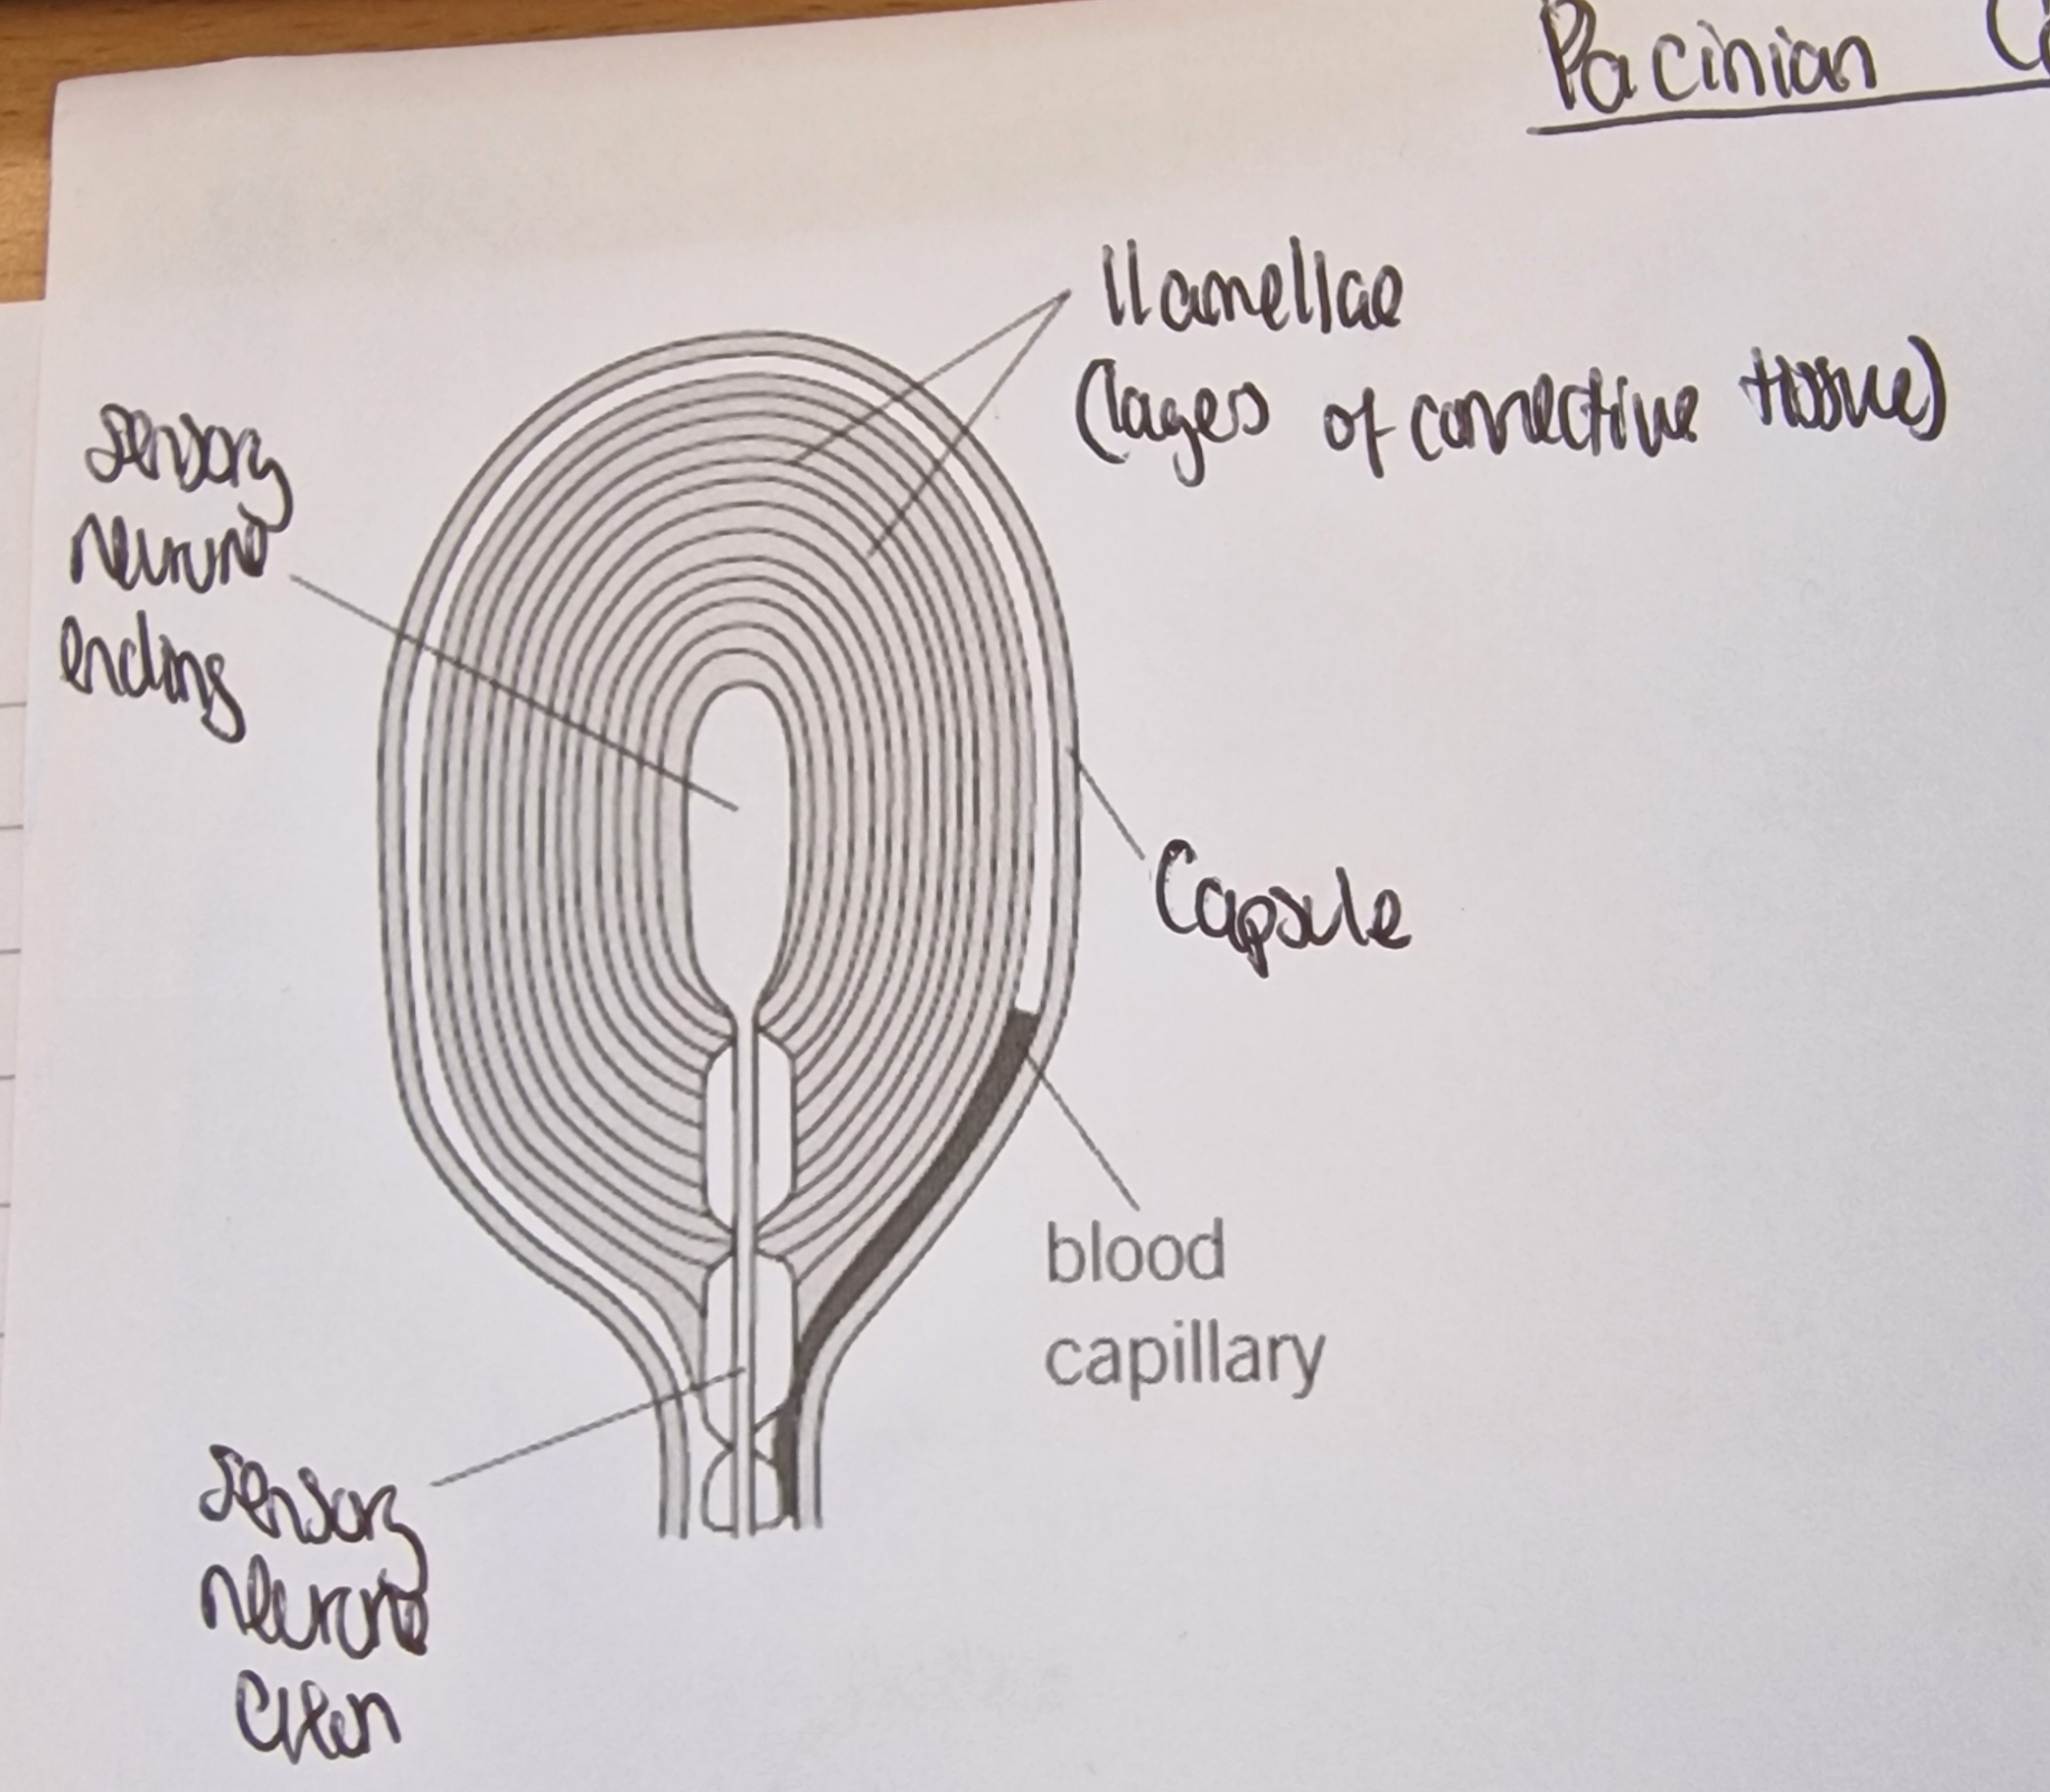 Pacinian
llamellae
(layers of connective tissue)
sensory
neurone
ending
Capsule
blood
capillary
sensory
neurone
axon